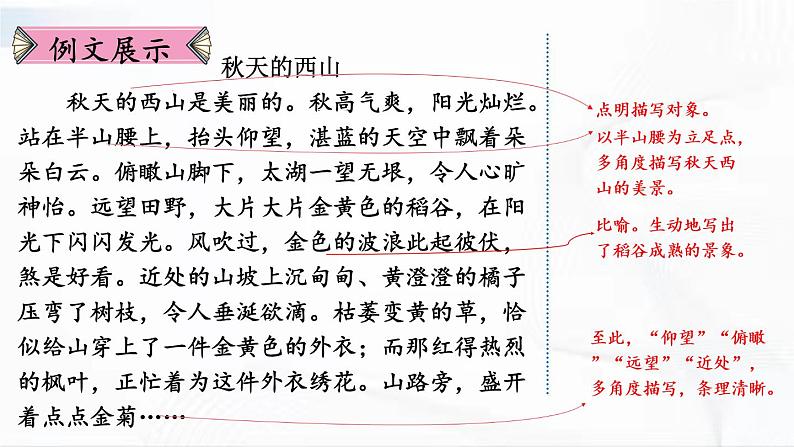 例文展示
秋天的西山
秋天的西山是美丽的。秋高气爽，阳光灿烂。
站在半山腰上，抬头仰望，湛蓝的天空中飘着朵
朵白云。俯瞰山脚下，太湖一望无垠，令人心旷
神怡。远望田野，大片大片金黄色的稻谷，在阳
光下闪闪发光。风吹过，金色的波浪此起彼伏，
煞是好看。近处的山坡上沉甸甸、黄澄澄的橘子
压弯了树枝，令人垂涎欲滴。枯萎变黄的草，恰
似给山穿上了一件金黄色的外衣；而那红得热烈
的枫叶，正忙着为这件外衣绣花。山路旁，盛开
着点点金菊……
点明描写对象。
以半山腰为立足点，
多角度描写秋天西
山的美景。
比喻。生动地写出
了稻谷成熟的景象。
至此，“仰望”“俯瞰
”“远望”“近处”，
多角度描写，条理清晰。